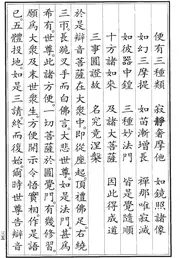 便有三種類 寂靜奢摩他 如鏡照諸像
如幻三摩提 如苗漸增長 禪那唯寂滅
如彼器中鍠 三種妙法門 皆是覺隨順
十方諸如來 及諸大菩薩 因此得成道
三事圓證故 名究竟涅槃
於是辯音菩薩在大眾中即從座起頂禮佛足右繞
三帀長跪叉手而白佛言大悲世尊如是法門甚為
希有世尊此諸方便一切菩薩於圓覺門有幾修習
願為大眾及末世眾生方便開示令悟實相作是語
已五體投地如是三請終而復始爾時世尊告辯音